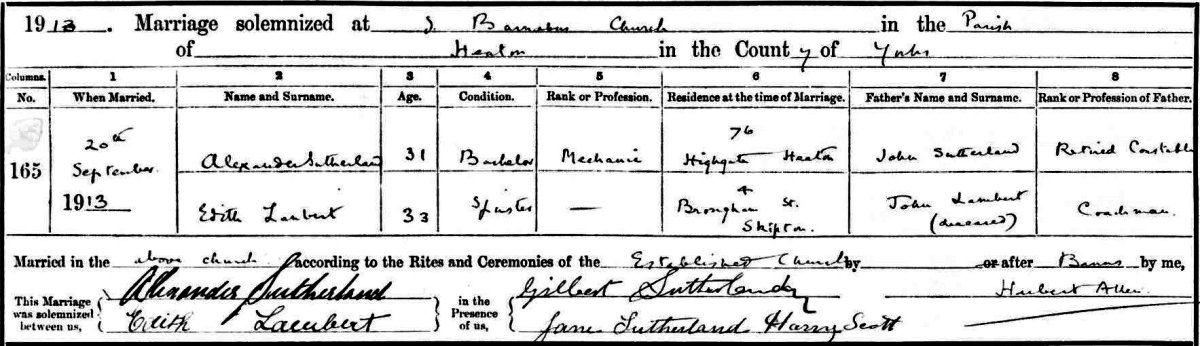 1913. Marriage solemnized at S. Barnabas Church in the Parish
of Heaton in the County of Yorks
Columns. 1 2 3 4 5 6 7 8
No. When Married. Name and Surname. Age. Condition. Rank or Profession. Residence at the time of Marriage. Father's Name and Surname. Rank or Profession of Father.
165
20th September 1913
Alexander Sutherland 31 Bachelor Mechanic 76 Highgate Heaton John Sutherland Retired Constable
Edith Lambert 33 Spinster — 4 Brougham St. Skipton. John Lambert (deceased) Coachman.
Married in the above church according to the Rites and Ceremonies of the Established Church by or after Banns by me,
This Marriage was solemnized between us, { Alexander Sutherland Edith Lambert } in the Presence of us, { Gilbert Sutherland Jane Sutherland Harry Scott
Hubert Allen